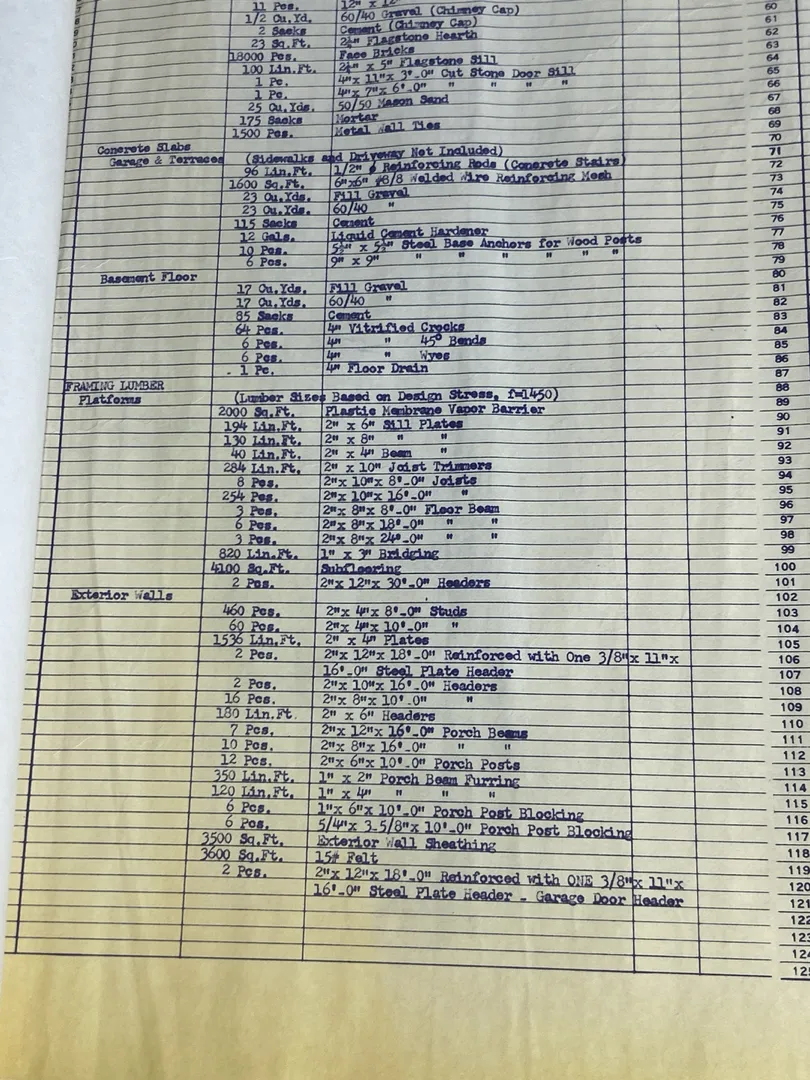 11 Pcs. 12" x 12" 60
1/2 Cu.Yd. 60/40 Gravel (Chimney Cap) 61
2 Sacks Cement (Chimney Cap) 62
23 Sq.Ft. 2½" Flagstone Hearth 63
18000 Pcs. Face Bricks 64
100 Lin.Ft. 2½" x 5" Flagstone Sill 65
1 Pc. 4"x 11"x 3'-0" Cut Stone Door Sill 66
1 Pc. 4"x 7"x 6'-0" " " " " 67
25 Cu.Yds. 50/50 Mason Sand 68
175 Sacks Mortar 69
1500 Pcs. Metal Wall Ties 70
Concrete Slabs 71
Garage & Terraces (Sidewalks and Driveway Not Included) 72
96 Lin.Ft. 1/2" ø Reinforcing Rods (Concrete Stairs) 73
1600 Sq.Ft. 6"x6" #8/8 Welded Wire Reinforcing Mesh 74
23 Cu.Yds. Fill Gravel 75
23 Cu.Yds. 60/40 " 76
115 Sacks Cement 77
12 Gals. Liquid Cement Hardener 78
10 Pcs. 5½" x 5½" Steel Base Anchors for Wood Posts 79
6 Pcs. 9" x 9" " " " " " " 80
Basement Floor 81
17 Cu.Yds. Fill Gravel 82
17 Cu.Yds. 60/40 " 83
85 Sacks Cement 84
64 Pcs. 4" Vitrified Crocks 85
6 Pcs. 4" " 45° Bends 86
6 Pcs. 4" " Wyes 87
1 Pc. 4" Floor Drain 88
FRAMING LUMBER 89
Platforms (Lumber Sizes Based on Design Stress, f=1450) 90
2000 Sq.Ft. Plastic Membrane Vapor Barrier 91
194 Lin.Ft. 2" x 6" Sill Plates 92
130 Lin.Ft. 2" x 8" " " 93
40 Lin.Ft. 2" x 4" Beam " 94
284 Lin.Ft. 2" x 10" Joist Trimmers 95
8 Pcs. 2"x 10"x 8'-0" Joists 96
254 Pcs. 2"x 10"x 16'-0" " 97
3 Pcs. 2"x 8"x 8'-0" Floor Beam 98
6 Pcs. 2"x 8"x 18'-0" " " 99
3 Pcs. 2"x 8"x 24'-0" " " 100
820 Lin.Ft. 1" x 3" Bridging 101
4100 Sq.Ft. Subflooring 102
2 Pcs. 2"x 12"x 30'-0" Headers 103
Exterior Walls 104
460 Pcs. 2"x 4"x 8'-0" Studs 105
60 Pcs. 2"x 4"x 10'-0" " 106
1536 Lin.Ft. 2" x 4" Plates 107
2 Pcs. 2"x 12"x 18'-0" Reinforced with One 3/8"x 11"x 108
16'-0" Steel Plate Header 109
2 Pcs. 2"x 10"x 16'-0" Headers 110
16 Pcs. 2"x 8"x 10'-0" " 111
180 Lin.Ft. 2" x 6" Headers 112
7 Pcs. 2"x 12"x 16'-0" Porch Beams 113
10 Pcs. 2"x 8"x 16'-0" " " 114
12 Pcs. 2"x 6"x 10'-0" Porch Posts 115
350 Lin.Ft. 1" x 2" Porch Beam Furring 116
120 Lin.Ft. 1" x 4" " " " 117
6 Pcs. 1"x 6"x 10'-0" Porch Post Blocking 118
6 Pcs. 5/4"x 3-5/8"x 10'-0" Porch Post Blocking 119
3500 Sq.Ft. Exterior Wall Sheathing 120
3600 Sq.Ft. 15# Felt 121
2 Pcs. 2"x 12"x 18'-0" Reinforced with ONE 3/8"x 11"x 122
16'-0" Steel Plate Header - Garage Door Header 123
124
125